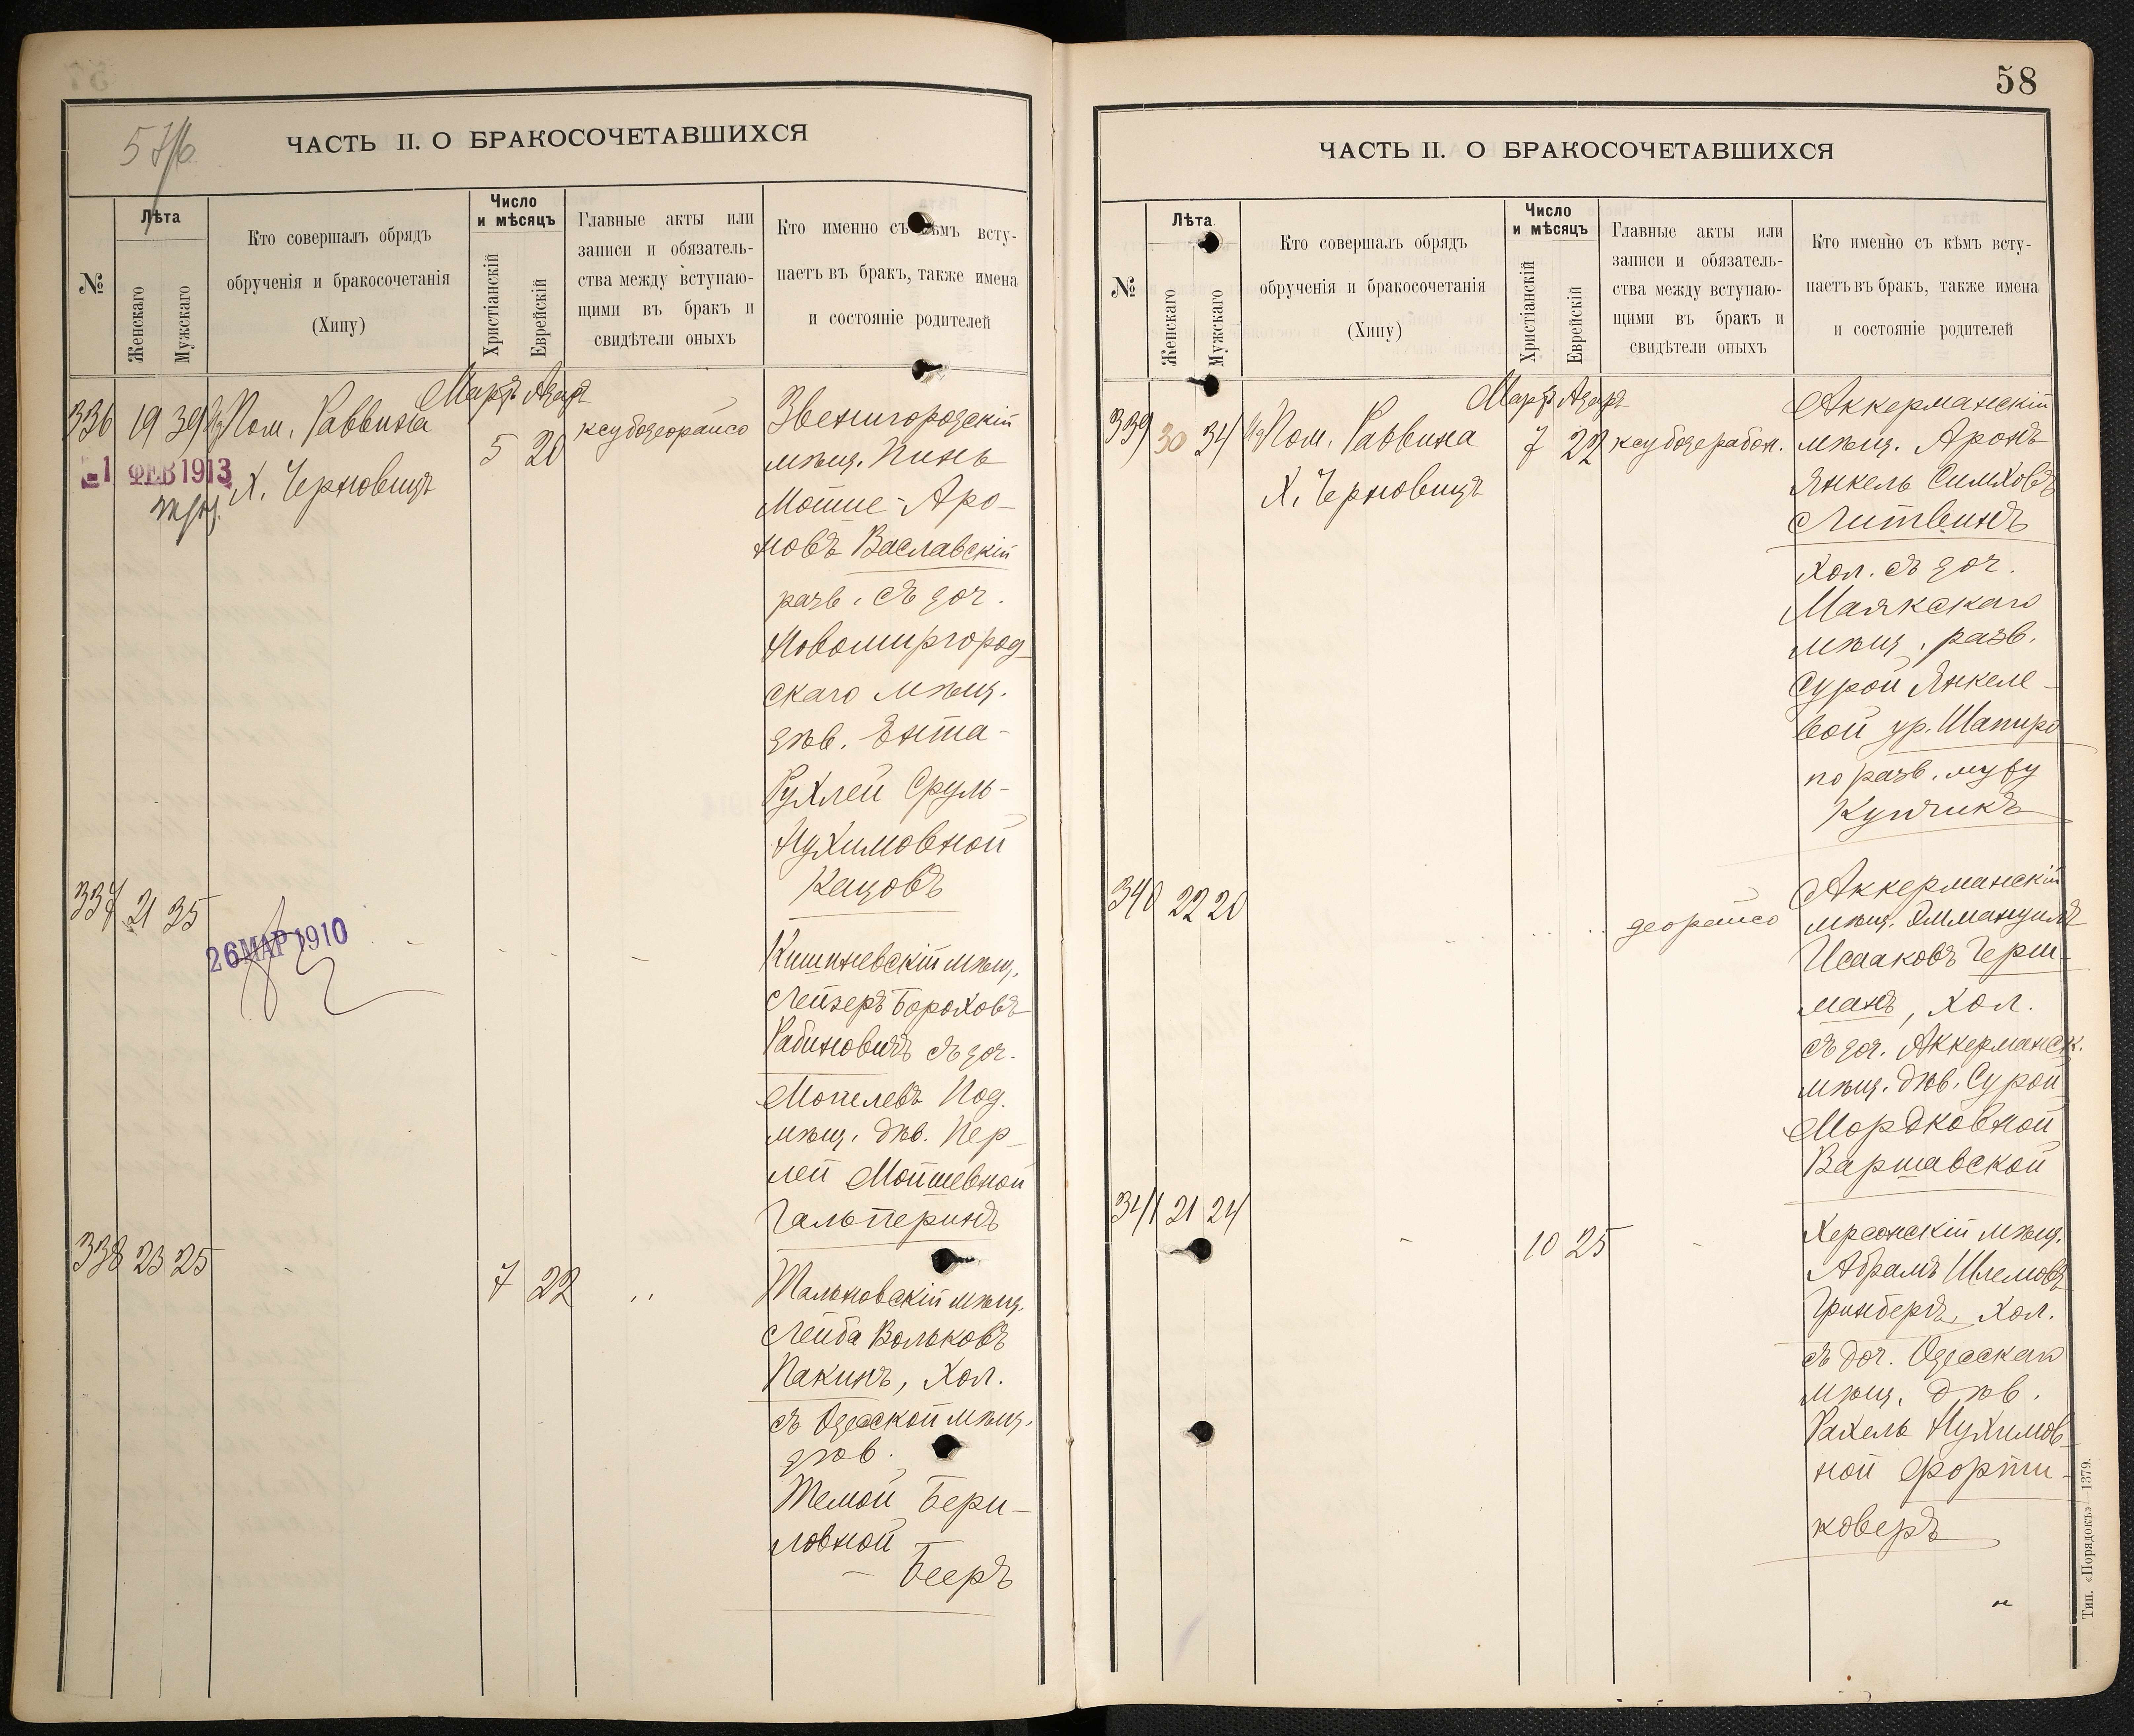 57/б
ЧАСТЬ II. О БРАКОСОЧЕТАВШИХСЯ
№
Лѣта
Женскаго
Мужскаго
Кто совершалъ обрядъ
обрученія и бракосочетанія
(Хипу)
Число
и мѣсяцъ
Христіанскій
Еврейскій
Главные акты или
записи и обязатель-
ства между вступаю-
щими въ бракъ и
свидѣтели оныхъ
Кто именно съ кѣмъ всту-
паетъ въ бракъ, также имена
и состояніе родителей
Мартъ Адаръ
336 19 39 Пом. Раввина
Х. Черновицъ
5 20
ксубодеорайсо
№1 ФЕВ 1913
Звенигородскій
мѣщ. Пинь
Мошие-Аро-
новъ Ваславскій
разв. съ доч.
Новомиргород-
скаго мѣщ.
дѣв. Ента-
Рухлей Сруль-
Нухимовной
Кацовъ
337 21 35
26 МАР 1910
Кишиневскій мѣщ.
Лейзеръ Бороховъ
Рабиновичъ съ доч.
Могилевъ Под.
мѣщ. дѣв. Пер-
лей Мойшевной
Гальперинъ
338 23 25 - 7 22 ..
Тальновскій мѣщ.
Лейба Вольковъ
Пакинъ, хол.
съ Одесской мѣщ.
дѣв.
Темой Бери-
ловной
Бееръ
58
ЧАСТЬ II. О БРАКОСОЧЕТАВШИХСЯ
№
Лѣта
Женскаго
Мужскаго
Кто совершалъ обрядъ
обрученія и бракосочетанія
(Хипу)
Число
и мѣсяцъ
Христіанскій
Еврейскій
Главные акты или
записи и обязатель-
ства между вступаю-
щими въ бракъ и
свидѣтели оныхъ
Кто именно съ кѣмъ всту-
паетъ въ бракъ, также имена
и состояніе родителей
Мартъ Адаръ
339 30 34 Пом. Раввина
Х. Черновицъ
7 22
ксубодерабон.
Аккерманскій
мѣщ. Аронъ
Янкель Симховъ
Литвинъ
хол. съ доч.
Маякскаго
мѣщ., разв.
Сурой Янкеле-
вой ур. Шапиро
по разв. мужу
Купчикъ
340 22 20
деорайсо
Аккерманскій
мѣщ. Эммануилъ
Исааковъ Герш-
манъ, хол.
съ доч. Аккерманск.
мѣщ. дѣв. Сурой
Мордковной
Варшавской
341 21 24 - 10 25 -
Херсонскій мѣщ.
Абрамъ Шлемовъ
Гринбергъ, хол.
съ доч. Одесскаго
мѣщ. дѣв.
Рахель Нухимов-
ной Форти-
коверъ
Тип. «Порядокъ»—1379.